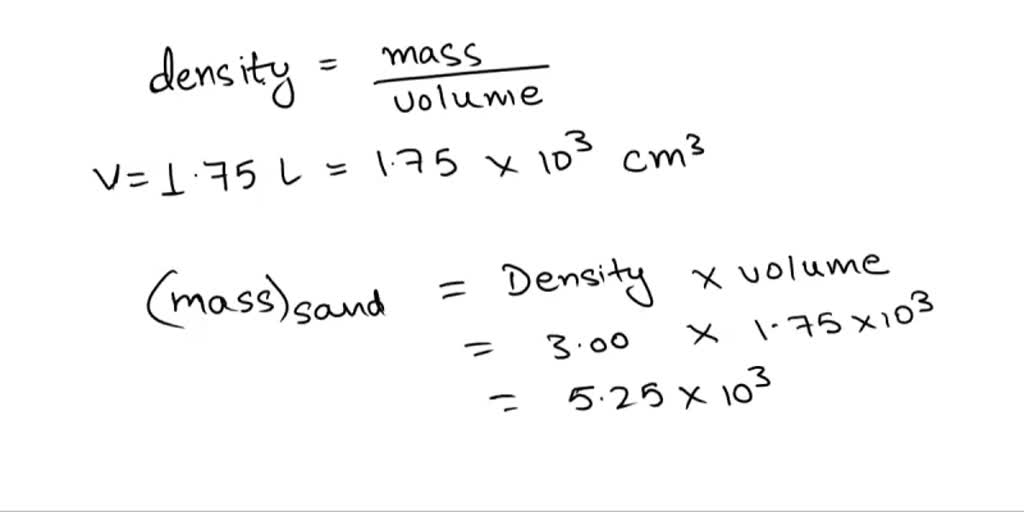 density = mass / volume
V = 1.75 L = 1.75 × 10³ cm³
(mass)sand = Density × volume
= 3.00 × 1.75 × 10³
= 5.25 × 10³